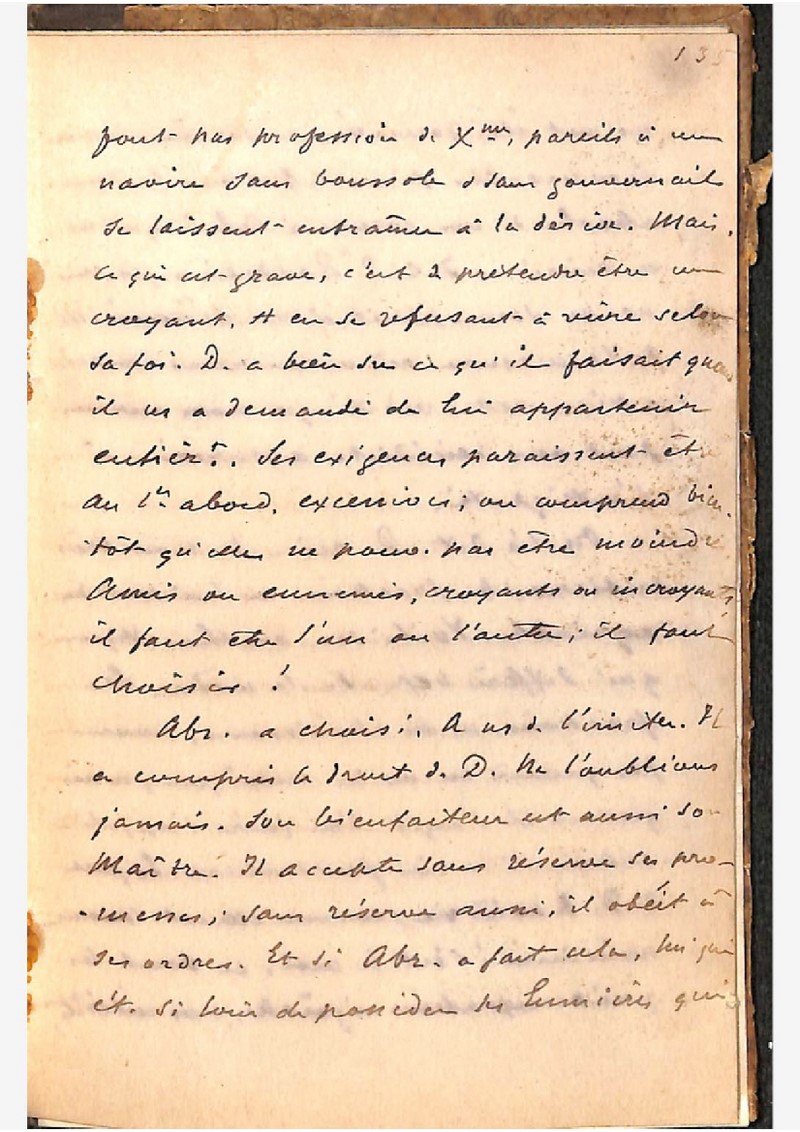 135
font pas profession de Xnme, pareils à un
navire sans boussole & sans gouvernail
se laissent entraîner à la dérive. Mais,
ce qui est grave, c'est de prétendre être un
croyant, et en se refusant à vivre selon
sa foi. D. a bien su ce qu'il faisait quand
il ns a demandé de lui appartenir
entièrt. Ses exigences paraissent être
au 1er abord, excessives; on comprend bien-
tôt qu'elles ne pouv. pas être moindres
Amis ou ennemis, croyants ou incroyants,
il faut être l'un ou l'autre; il faut
choisir !
Abr. a choisi. A ns de l'imiter. Il
a compris le droit de D. Ne l'oublions
jamais. Son bienfaiteur est aussi son
Maître. Il accepte sans réserve ses pro-
-messes; sans réserve aussi, il obéit à
ses ordres. Et si Abr. a fait cela, lui qui
ét. si loin de posséder les lumières qui